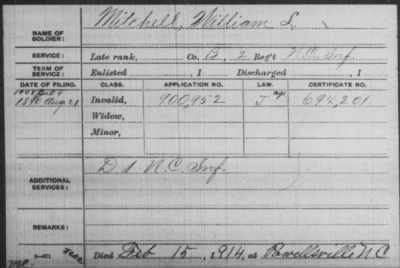 Mitchell, William L.
NAME OF SOLDIER:
SERVICE: Late rank, Co. B, 2 Reg't N.C. Inf.
TERM OF SERVICE: Enlisted , 1 Discharged , 1
DATE OF FILING. CLASS. APPLICATION NO. LAW. CERTIFICATE NO.
1890 Aug 21 Invalid, 900,952 J 694,201
Widow,
Minor,
ADDITIONAL SERVICES: D 1 N.C. Inf.
REMARKS:
Died Feb 15, 1914, at Powellsville N C